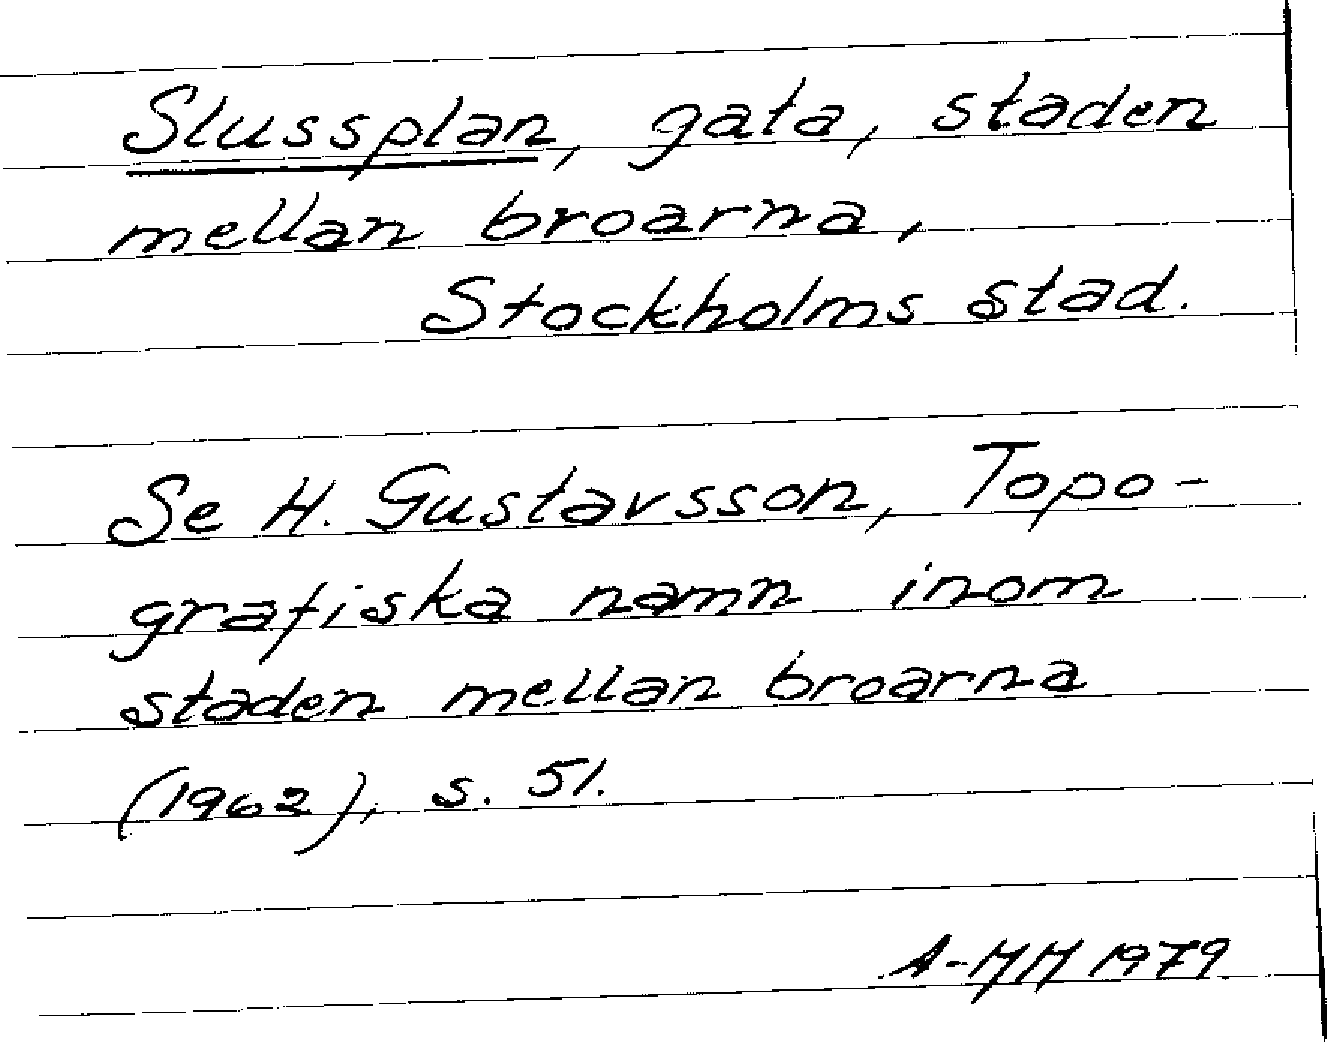 Slussplan, gata, staden
mellan broarna,
Stockholms stad.
Se H. Gustavsson, Topo-
grafiska namn inom
staden mellan broarna
(1962), s. 51.
A-MM 1979